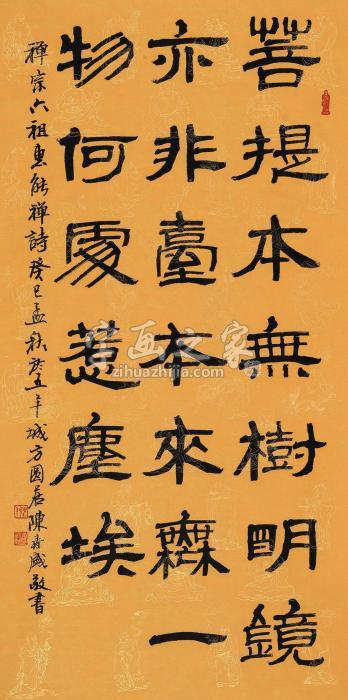 菩提本無樹明鏡
亦非臺本來無一
物何處惹塵埃
禅宗六祖惠能禅詩癸巳孟秋於五羊城方圓居陳寿敬書
字画之家
zihuazhijia.com